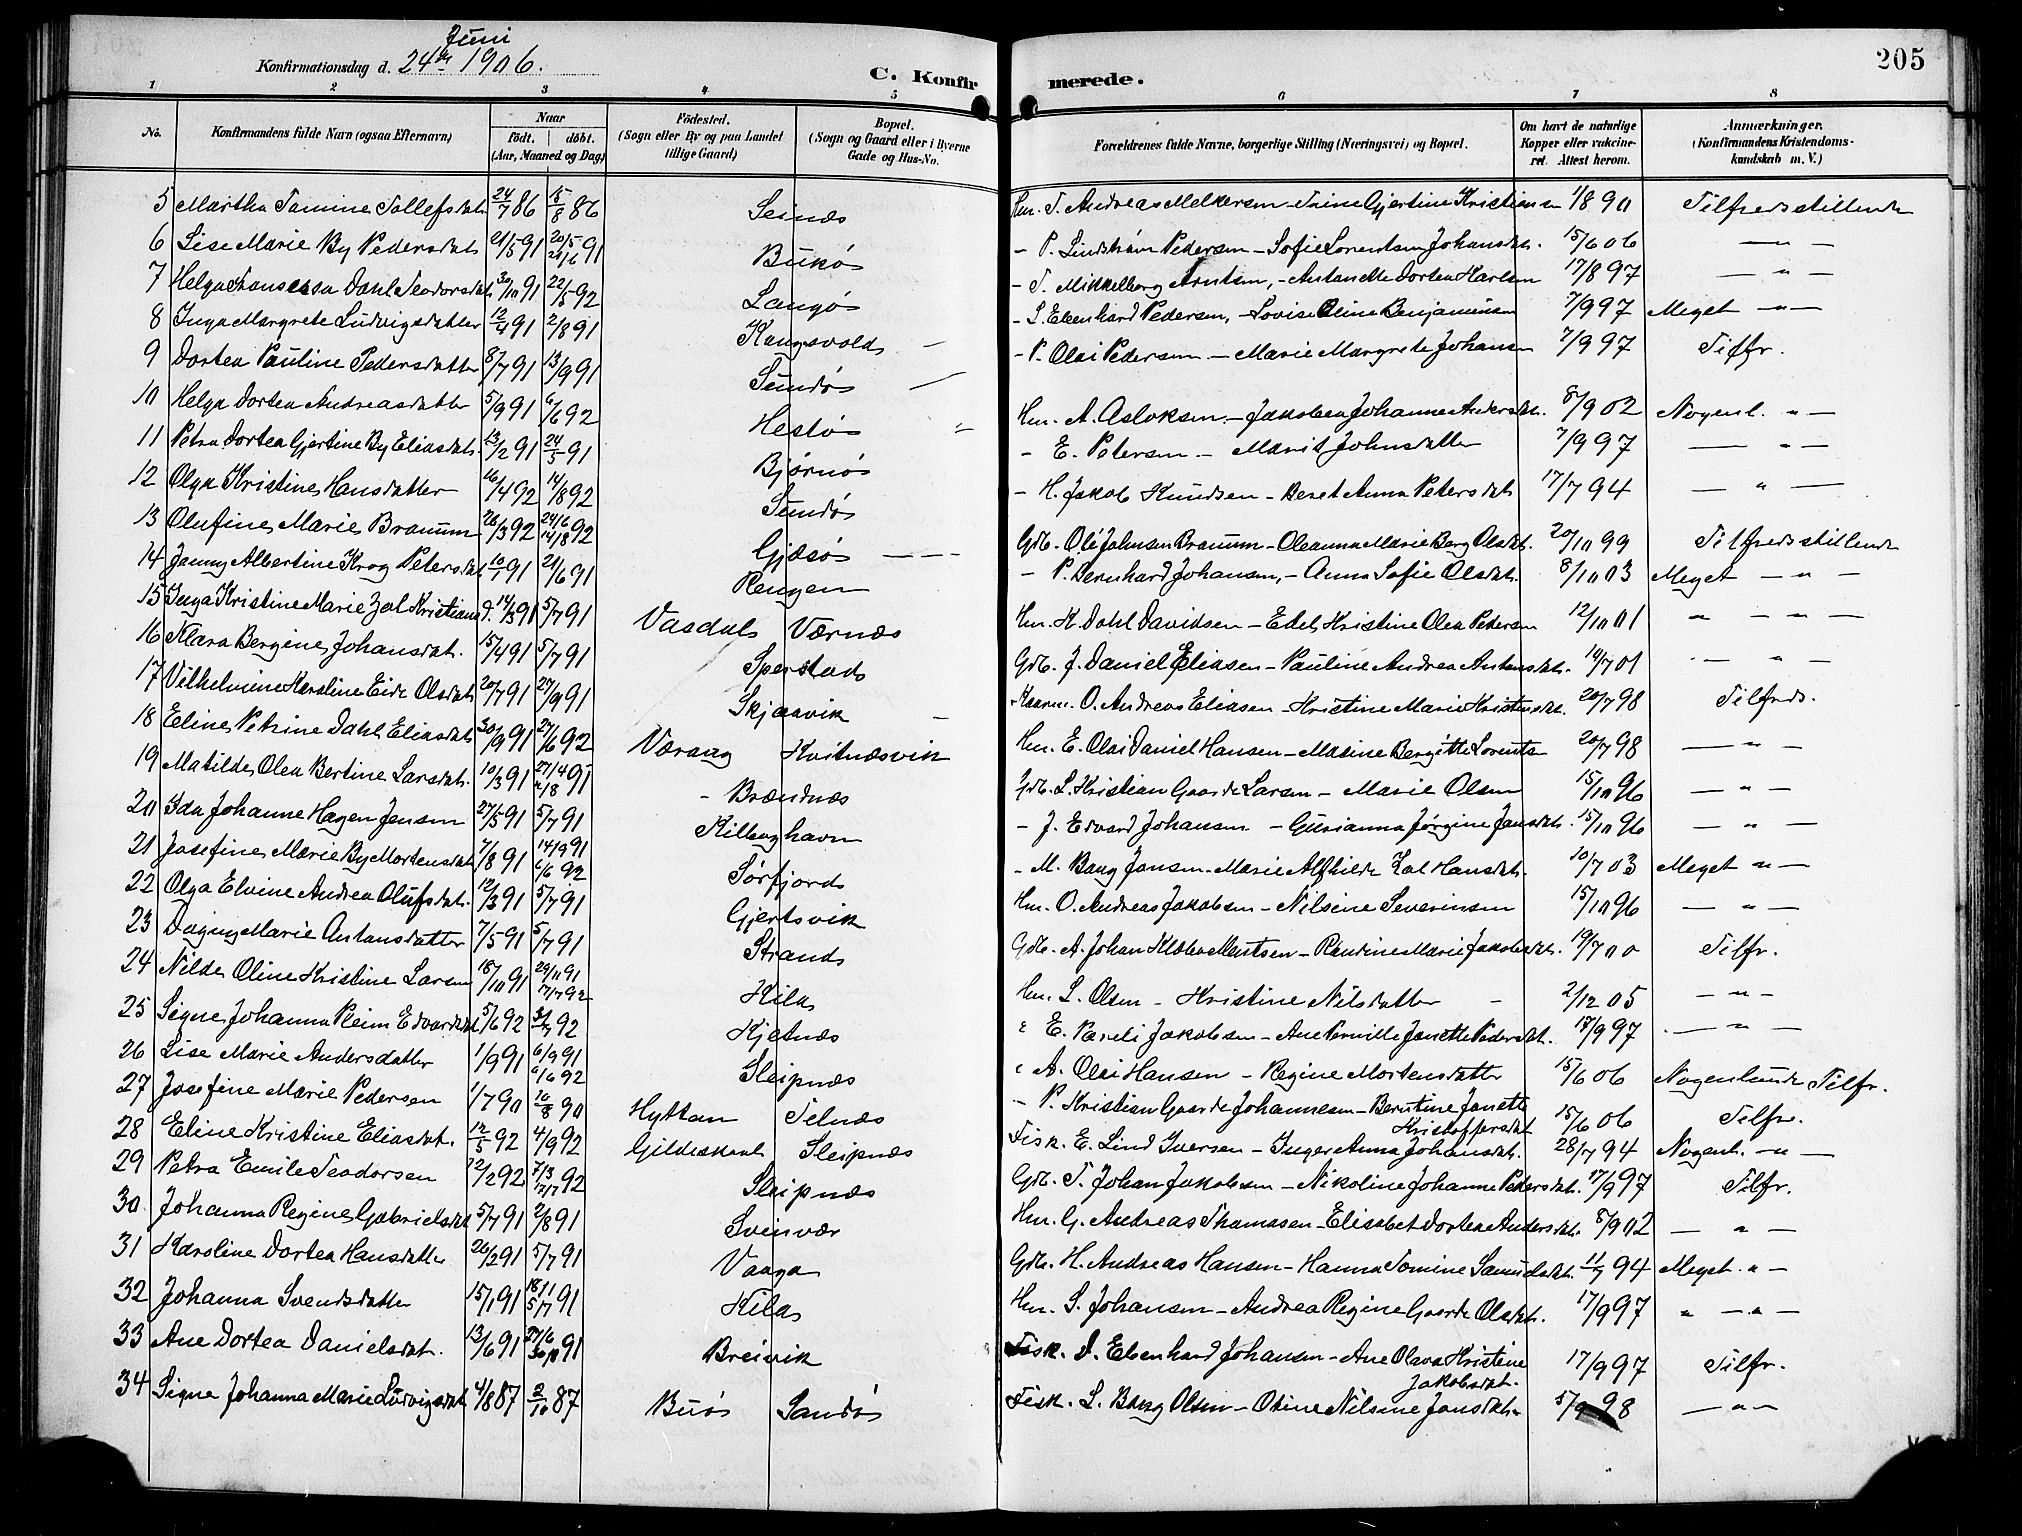 Juni
205
Konfirmationsdag d. 24de 1906.
C. Konfirmerede.
1 2 3 4 5 6 7 8
No.
Konfirmandens fulde Navn (ogsaa Efternavn)
Naar
födt. döbt.
(Aar, Maaned og Dag)
Födested.
(Sogn eller By og paa Landet tillige Gaard)
Bopæl.
(Sogn og Gaard eller i Byerne Gade og Hus-No.
Forældrenes fulde Navne, borgerlige Stilling (Næringsvei) og Bopæl.
Om havt de naturlige Kopper eller vakcineret. Attest herom.
Anmærkninger.
(Konfirmandens Kristendomskundskab m. V.)
5 Martha Tomine Tollefsdat. 24/7 86 15/8 86 Seines Hm. T. Andreas Melkersen - Trine Gjertine Kristiansen 1/8 90 Tilfredsstillende
6 Lise Marie By Pedersdat 21/5 91 Bukø - P. Lindstrøm Pedersen - Sofie Lorentsen Johansdat. 15/6 06 — " —
7 Helga Dahl Teodorsdat 30/10 91 22/5 92 Langø - T. Mikkelborg Arntsen, - Antanette Dortea Karlsen 17/8 97 — " —
8 Inga Margrete Ludvigsdatter 12/4 91 2/8 91 Kangsvold - L. Edenhard Pedersen, - Lovise Oline Benjaminsen 7/9 97 Meget — " —
9 Dortea Pauline Pedersdatter 8/7 91 13/9 91 Sundø - P. Olai Pedersen - Marie Margrete Johansen 7/9 97 Tilfr.
10 Helga Dortea Andreasdatter 5/9 91 6/6 92 Hestø Hm. A. Aslaksen - Jakobea Johanne Andersdat. 8/9 02 Nogenl. " —
11 Petra Dortea Gjertine By Eliasdat. 13/2 91 24/5 91 Bjørnø - E. Petersen - Marit Johnsdatter 7/9 97 — " —
12 Olga Kristine Hansdatter 16/4 92 14/8 92 Sundø - H. Jakob Knudsen - Beret Anna Petersdat 17/7 94 — " —
13 Olufine Marie Branum 26/3 92 24/6 14/8 92 Gjæsø Gdb. Ole Johnsen Braunm - Oleanna Marie Berg Olsdat. 20/10 99 Tilfredsstillende
14 Jenny Albertine Krog Petersdat 10/1 91 21/6 91 Rengen - P. Bernhard Johansen, - Anna Sofie Olsdat. 8/10 03 Meget — " —
15 Inga Kristine Marie Zal Kristiansd. 14/3 91 5/7 91 Vasdal Værnes Hm. K. Dahl Davidsen - Edel Kristine Olea Petersen 12/10 01 " — " —
16 Klara Bergine Johansdat. 15/4 91 5/7 91 Sperstad Gdb. J. Daniel Eliasen - Pauline Andrea Antonsdat. 14/7 01 — " —
17 Vilhelmine Karoline Eide Olsdat 20/7 91 27/9 91 Skjæsvik O. Andreas Eliasen - Kristine Marie 20/7 98 Tilfreds.
18 Eline Petrine Dahl Eliasdat 30/9 91 27/6 92 Værang Kvitnesvik Hm. E. Olai Daniel Hansen - Masine Bergitte Lorents 20/7 98 — " —
19 Matilde Olea Bertine Larsdat. 10/3 91 27/4 91 - Brændnes Gdb. L. Kristian Gaarde Larsen - Marie Olsen 15/10 96 — " —
20 Ida Johanne Hagen Jensen 27/5 91 5/7 91 Kilboghavn - J. Edvard Johansen - Gurianna Jørgine Jansdat. 15/10 96 — " —
21 Josefine Marie By Mortensdat 7/8 91 14/9 91 6/6 92 Sørfjord - M. Bang Jansen - Marie Alfhilde Zal Hansdat. 10/7 03 Meget " —
22 Olga Elvine Andrea Olufsdat. 12/3 91 5/7 91 Gjertsvik Hm. O. Andreas Jakobsen - Nilsine Severinsen 15/10 96 — " —
23 Dagny Marie Antonsdatter 7/5 91 5/7 91 Strand Gdb. A. Johan Klæbo Mentsen - Randine Marie Jakobsdat. 19/7 00 Tilfr.
24 Nilde Oline Kristine Larsen 18/10 91 29/11 91 17/7 92 Kila Hm. L. Olsen - Kristine Nilsdatter 2/12 05 — " —
25 Signe Johanna Pleim Edvardsdat 5/6 92 3/7 92 Kjetnes E. Pareli Jakobsen - Ane Pernille Janette Pedersdat. 17/9 97 — " —
26 Lise Marie Andersdatter 1/9 91 6/9 91 6/6 92 Sleipnes A. Olai Hansen - Regine Mortensdatter 15/6 06 Nogenlunde Tilfr.
27 Josefine Marie Pedersen 1/7 90 10/8 90 Hyttan Telnes - P. Kristian Gaarde Johannesen - Berntine Janette Kristoffersdat 15/6 06 Tilfr.
28 Eline Kristine Eliasdat. 12/5 92 4/9 92 Gildeskaal Sleipnes Fisk. E. Lind Iversen - Inger Anna Johansdat. 28/7 94 Nogenl. — " —
29 Petra Emilie Teodorsen 12/2 92 7/3 17/7 92 Sleipnes Gdb. T. Johan Jakobsen - Nikoline Johanne Pedersdat. 17/9 97 Tilfr.
30 Johanna Regine Gabrielsdat 5/7 91 2/8 91 Svinvær Hm. G. Andreas Thomasen - Elisabet Dortea Andersdat. 8/9 02 — " —
31 Karoline Dortea Hansdatter 26/2 91 5/7 91 Vaaga Gdb. H. Andreas Hansen - Hanna Tomine Samuelsdat. 11/7 94 Meget " —
32 Johanna Svendsdatter 15/1 91 18/1 5/7 91 Kila Hm. S. Johansen - Andrea Regine Gaarde Olsdat. 17/9 97 " — " —
33 Ane Dortea Danielsdat. 13/6 91 91 Breivik Fisk. D. Edenhard Johansen - Ane Olava Kristine Jakobsdat. 17/9 97 Tilfr.
34 Signe Johanna Marie Ludvigsdat 4/8 87 2/10 87 Buø Sandø Fisk. L. Bang Olsen - Otine Nilsine Jansdat. 98 — " —